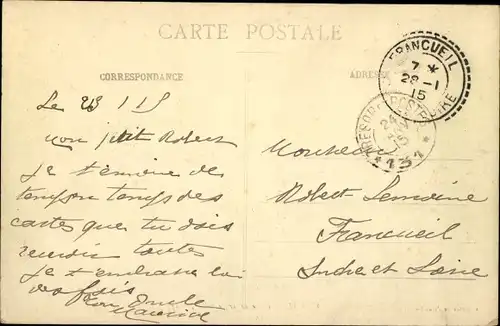 CARTE POSTALE
CORRESPONDANCE
ADRESSE
FRANCUEIL
7 *
28-1
15
TRESOR ET POSTES
* 131 *
Le 23 1 15
Mon petit Robert
Je t'envoie de
temps en temps des
cartes que tu dois
recevoir toutes
Je t'embrasse bien
des fois
Ton Oncle
Maurice
Monsieur
Robert Lemoine
Francueil
Indre et Loire